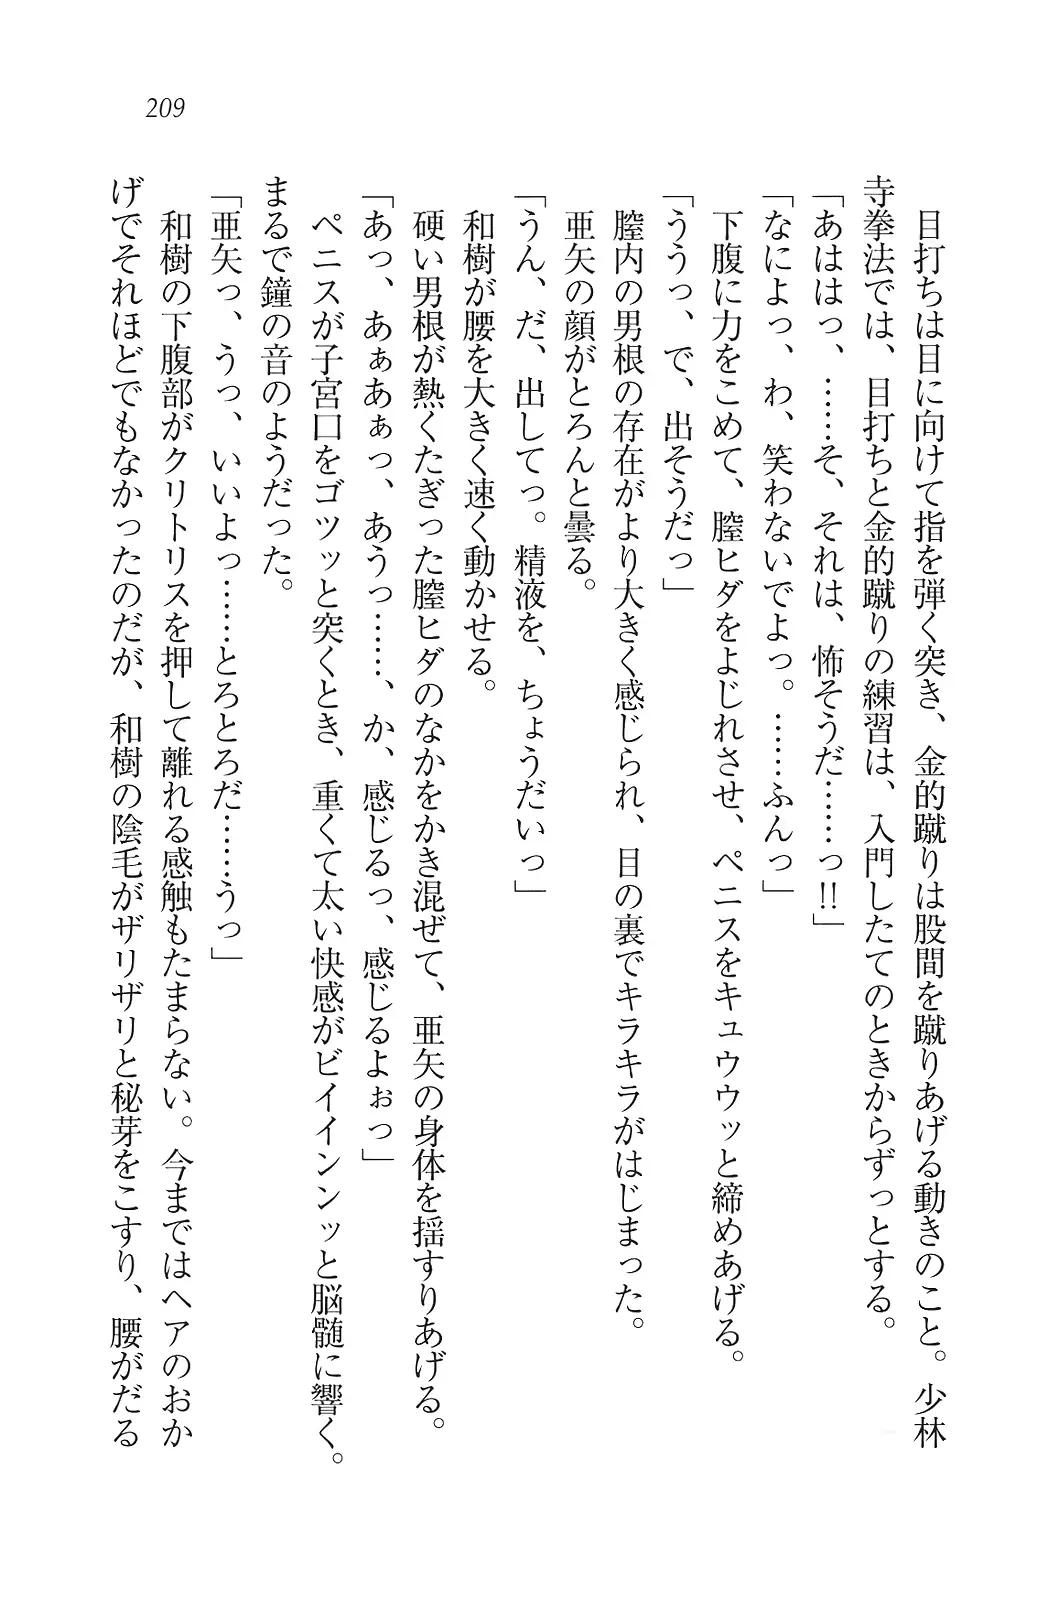 209
　目打ちは目に向けて指を弾く突き、金的蹴りは股間を蹴りあげる動きのこと。少林
寺拳法では、目打ちと金的蹴りの練習は、入門したてのときからずっとする。
「あははっ、……そ、それは、怖そうだ……っ!!」
「なによっ、わ、笑わないでよっ。……ふんっ」
　下腹に力をこめて、膣ヒダをよじれさせ、ペニスをキュウウッと締めあげる。
「ううっ、で、出そうだっ」
　膣内の男根の存在がより大きく感じられ、目の裏でキラキラがはじまった。
　亜矢の顔がとろんと曇る。
「うん、だ、出してっ。精液を、ちょうだいっ」
　和樹が腰を大きく速く動かせる。
　硬い男根が熱くたぎった膣ヒダのなかをかき混ぜて、亜矢の身体を揺すりあげる。
「あっ、あぁあぁっ、あうっ……、か、感じるっ、感じるよぉっ」
　ペニスが子宮口をゴツッと突くとき、重くて太い快感がビイインンッと脳髄に響く。
まるで鐘の音のようだった。
「亜矢っ、うっ、いいよっ……とろとろだ……うっ」
　和樹の下腹部がクリトリスを押して離れる感触もたまらない。今まではヘアのおか
げでそれほどでもなかったのだが、和樹の陰毛がザリザリと秘芽をこすり、腰がだる